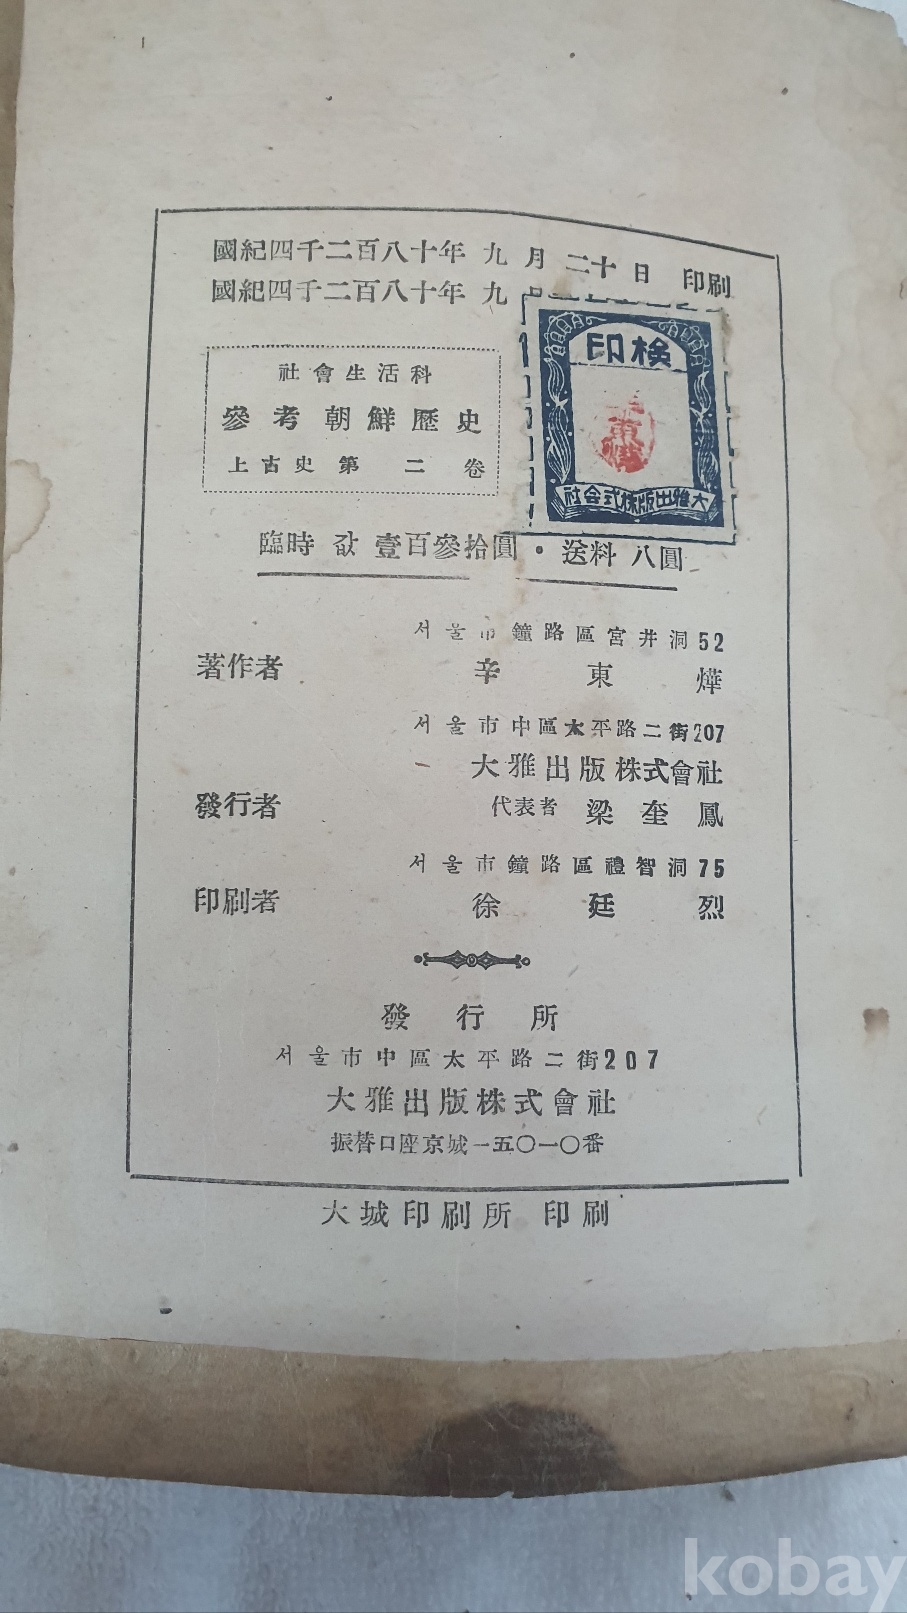 國紀四千二百八十年 九月 二十日 印刷
國紀四千二百八十年 九
印検
社會生活科
參考 朝鮮歷史
上古史 第二卷
大雅出版株式会社
臨時 값 壹百參拾圓 · 送料 八圓
서울市鐘路區宮井洞52
著作者 辛東燁
서울市中區太平路二街207
大雅出版株式會社
發行者 代表者 梁奎鳳
서울市鐘路區禮智洞75
印刷者 徐廷烈
發行所
서울市中區太平路二街207
大雅出版株式會社
振替口座京城一五〇一〇番
大城印刷所 印刷
kobay